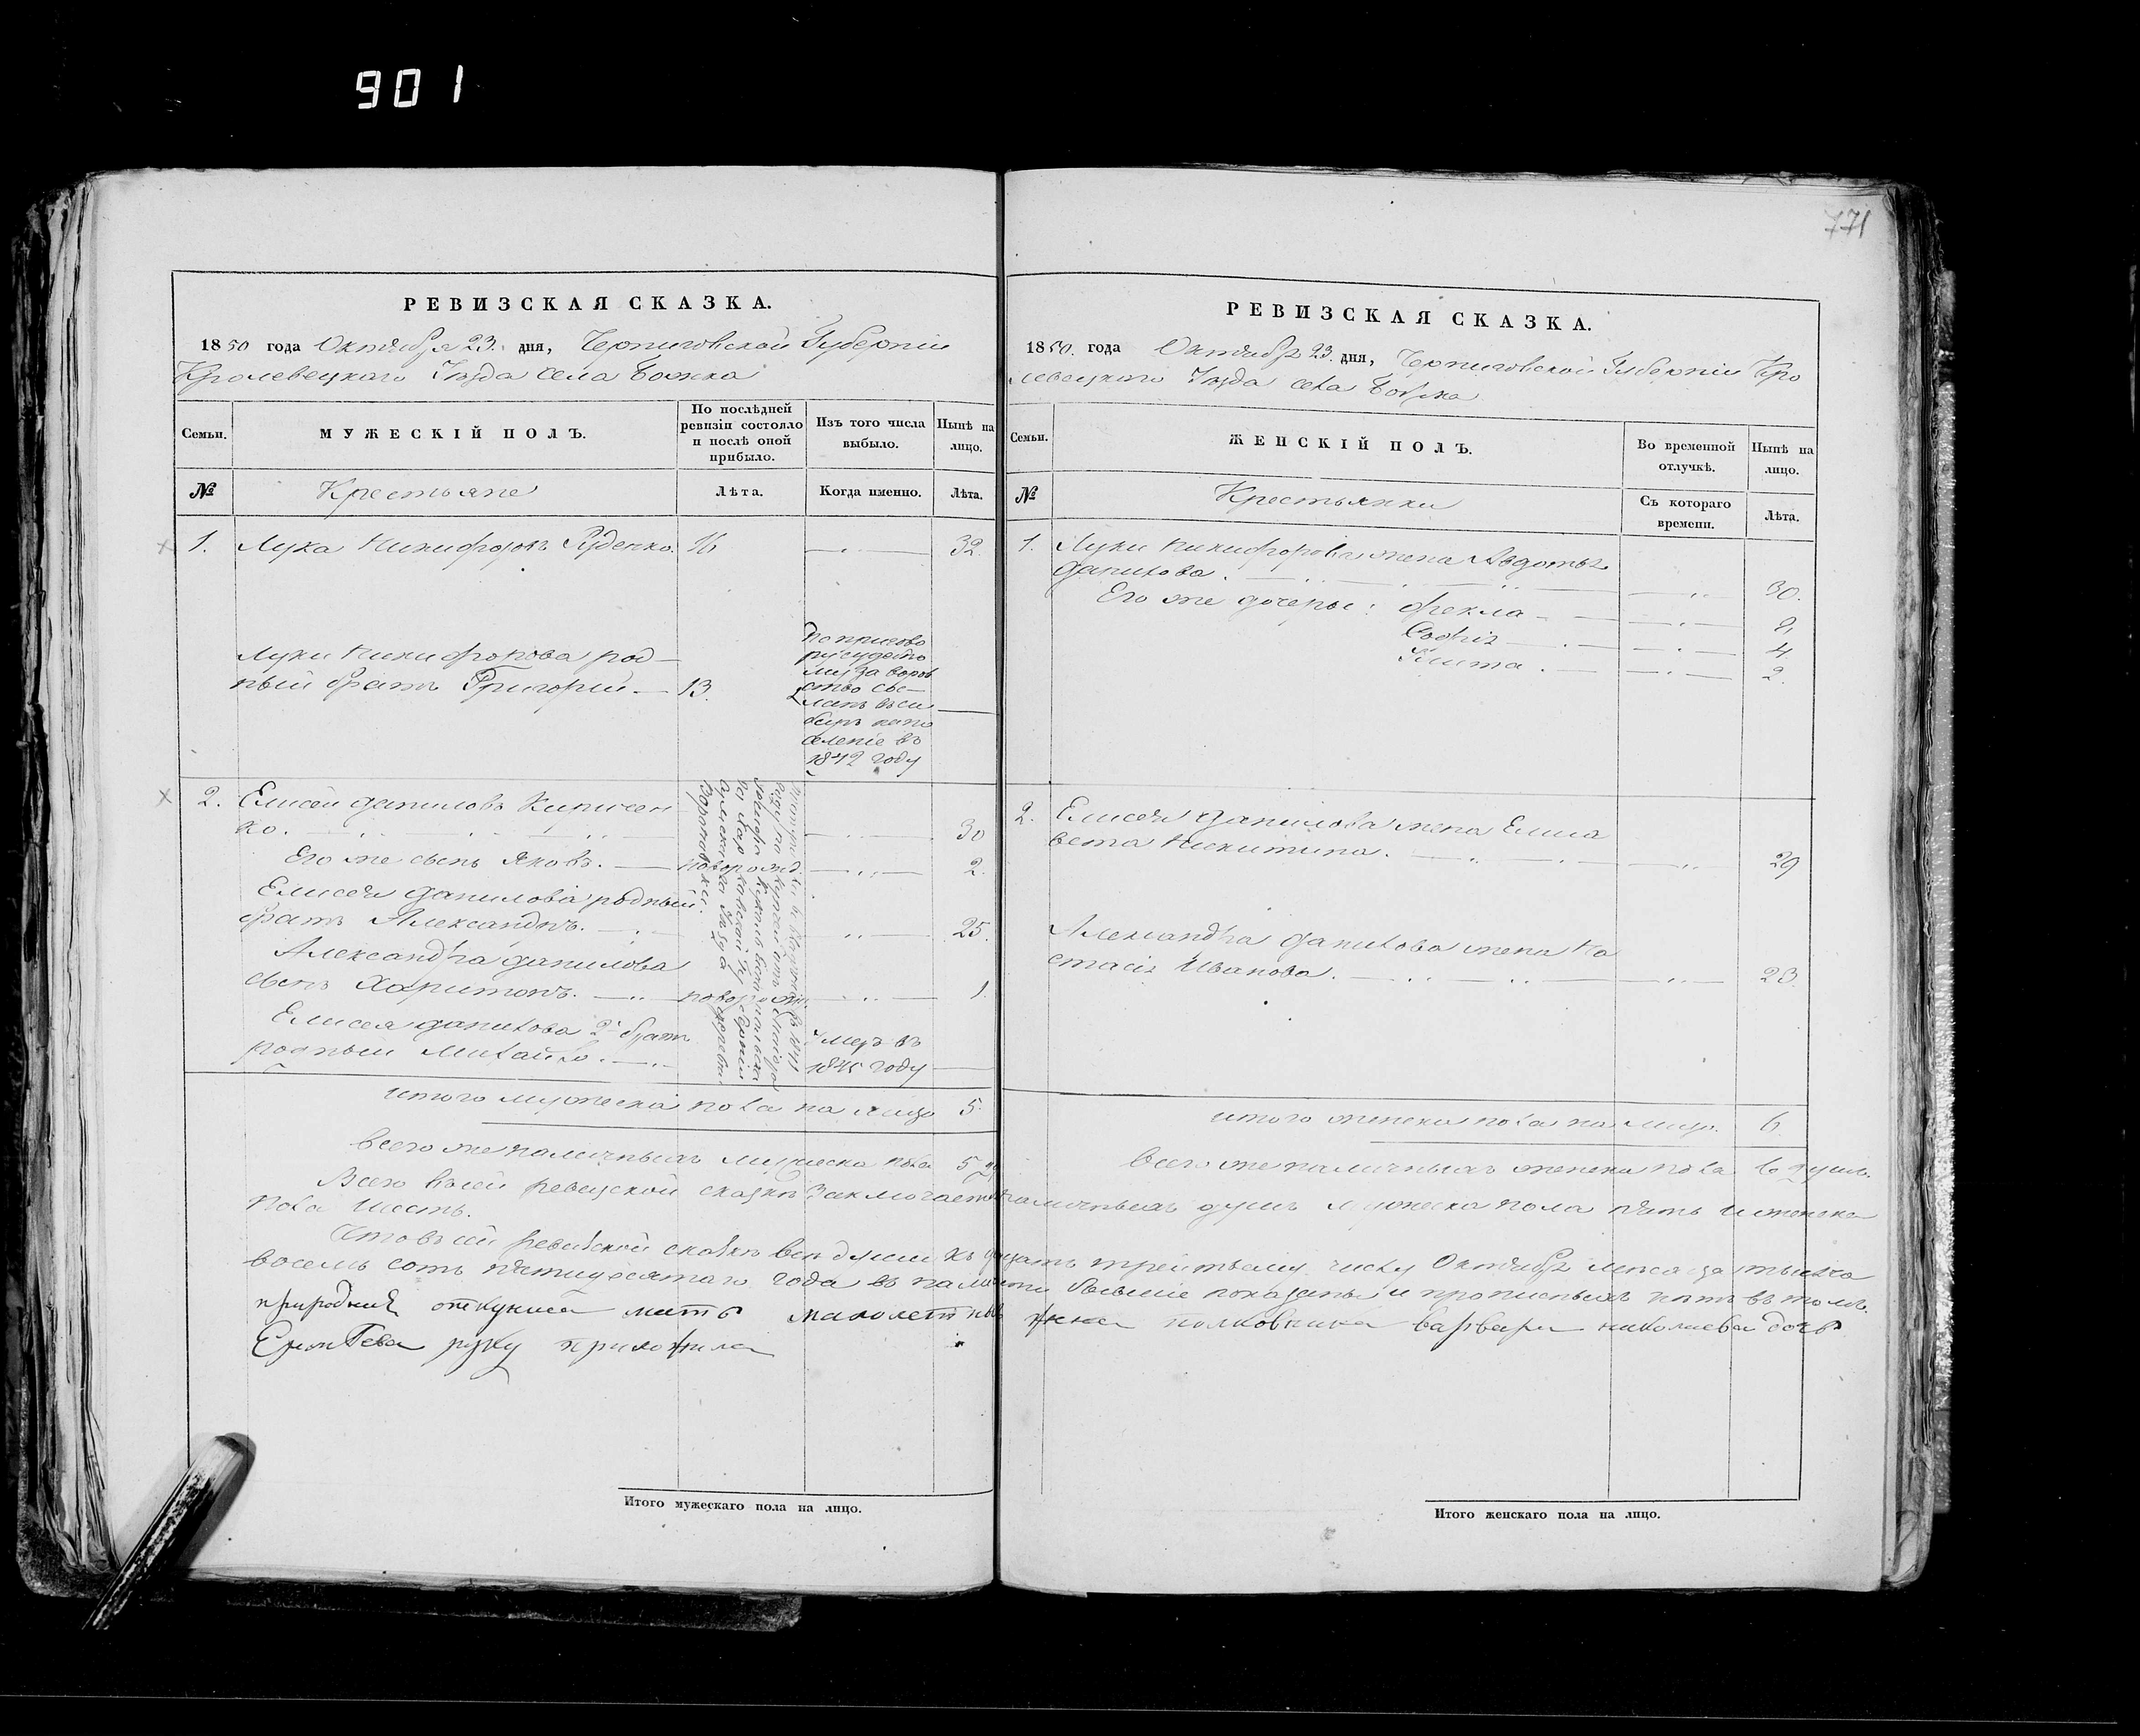 901
771
РЕВИЗСКАЯ СКАЗКА.
1850 года Октября 23. дня, Черниговской Губерніи
Кролевецкаго Уѣзда села
МУЖЕСКІЙ ПОЛЪ.
Семьи.
По послѣдней
ревизіи состояло
и послѣ оной
прибыло.
Изъ того числа
выбыло.
Нынѣ на
лицо.
№
Крестьяне
Лѣта.
Когда именно.
Лѣта.
1. Лука Никифоровъ Руденко. 16 32.
Луки Никифорова род
ный братъ Григорій. 13.
по пригово
ру
за воров
ство сос
ланъ въ си
бирь на по
селеніе въ
1842 году
2. Елисей Даниловъ Киричен
ко. 30
Его же сынъ Яковъ. новорожд 2.
Елисея Данилова родный
братъ Александръ. 25.
Александра Данилова
сынъ Харитонъ. 1.
Елисея Данилова 2й братъ
родный Михайло.
умеръ въ
1845 году
итого мужеска пола на лицо 5.
Всего же наличныхъ мужеска пола 5
Итого мужескаго пола на лицо.
РЕВИЗСКАЯ СКАЗКА.
1850. года Октября 23. дня, Черниговской Губерніи Кро
левецкаго Уѣзда села
Семьи.
ЖЕНСКІЙ ПОЛЪ.
Во временной
отлучкѣ.
Нынѣ на
лицо.
№
Крестьянки
Съ котораго
времени.
Лѣта.
1. Луки Никифорова жена Авдотья
Данилова. 30.
Его же дочери: Фекла
Софія 4
2.
2. Елисея Данилова жена Елиса
вета Никитина. 29
Александра Данилова жена На
стасія Иванова. 23.
итого женска пола на лицо. 6.
Всего же наличныхъ женска пола 6 душъ.
Всего въ сей ревизской сказкѣ заключается наличныхъ душъ мужеска пола пять и женска
пола шесть.
Что въ сей ревизской сказкѣ всѣ души къ двадцать третьему числу Октября мѣсяца тысяча
восемь сотъ пятидесятаго года въ наличности бывшіе показаны и прописныхъ нѣтъ въ томъ.
мать полковника варвара николаева дочь
руку приложила
Итого женскаго пола на лицо.